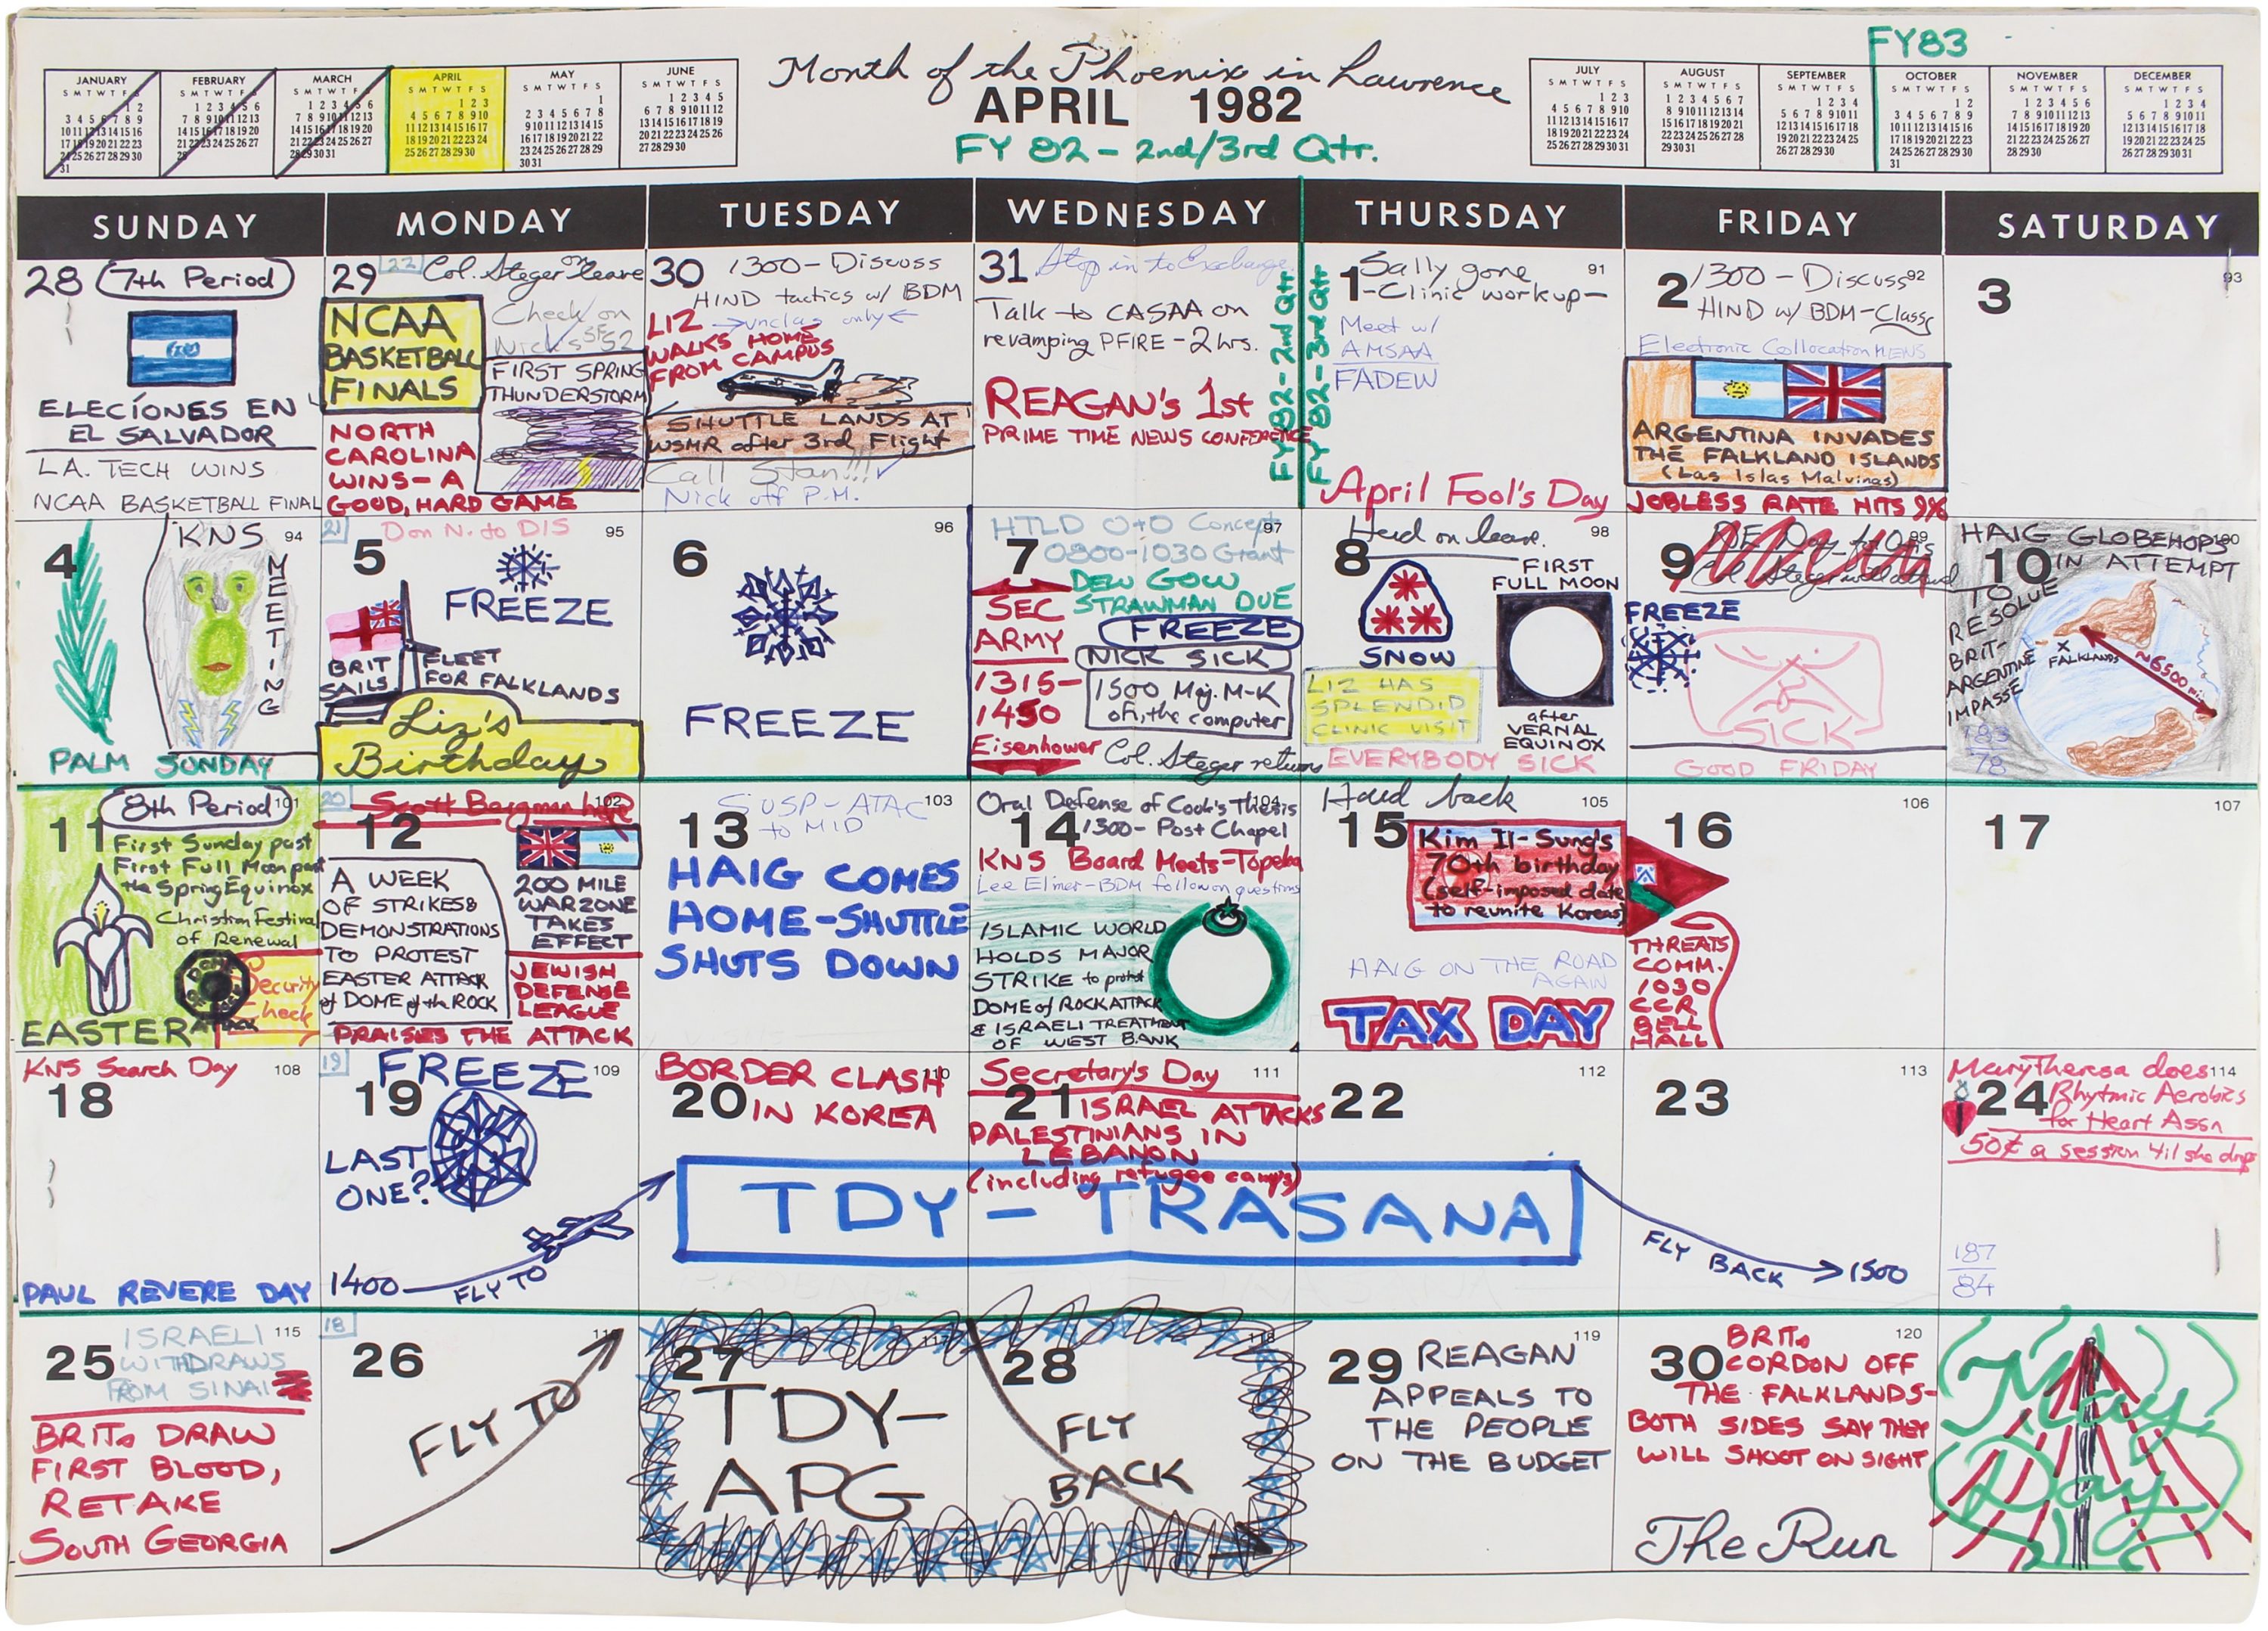 Month of the Phoenix in Lawrence
APRIL 1982
FY 82 - 2nd/3rd Qtr.
FY83
JANUARY
S M T W T F S
1 2
3 4 5 6 7 8 9
10 11 12 13 14 15 16
17 18 19 20 21 22 23
24 25 26 27 28 29 30
31
FEBRUARY
S M T W T F S
1 2 3 4 5 6
7 8 9 10 11 12 13
14 15 16 17 18 19 20
21 22 23 24 25 26 27
28
MARCH
S M T W T F S
1 2 3 4 5 6
7 8 9 10 11 12 13
14 15 16 17 18 19 20
21 22 23 24 25 26 27
28 29 30 31
APRIL
S M T W T F S
1 2 3
4 5 6 7 8 9 10
11 12 13 14 15 16 17
18 19 20 21 22 23 24
25 26 27 28 29 30
MAY
S M T W T F S
1
2 3 4 5 6 7 8
9 10 11 12 13 14 15
16 17 18 19 20 21 22
23 24 25 26 27 28 29
30 31
JUNE
S M T W T F S
1 2 3 4 5
6 7 8 9 10 11 12
13 14 15 16 17 18 19
20 21 22 23 24 25 26
27 28 29 30
JULY
S M T W T F S
1 2 3
4 5 6 7 8 9 10
11 12 13 14 15 16 17
18 19 20 21 22 23 24
25 26 27 28 29 30 31
AUGUST
S M T W T F S
1 2 3 4 5 6 7
8 9 10 11 12 13 14
15 16 17 18 19 20 21
22 23 24 25 26 27 28
29 30 31
SEPTEMBER
S M T W T F S
1 2 3 4
5 6 7 8 9 10 11
12 13 14 15 16 17 18
19 20 21 22 23 24 25
26 27 28 29 30
OCTOBER
S M T W T F S
1 2
3 4 5 6 7 8 9
10 11 12 13 14 15 16
17 18 19 20 21 22 23
24 25 26 27 28 29 30
31
NOVEMBER
S M T W T F S
1 2 3 4 5 6
7 8 9 10 11 12 13
14 15 16 17 18 19 20
21 22 23 24 25 26 27
28 29 30
DECEMBER
S M T W T F S
1 2 3 4
5 6 7 8 9 10 11
12 13 14 15 16 17 18
19 20 21 22 23 24 25
26 27 28 29 30 31
SUNDAY MONDAY TUESDAY WEDNESDAY THURSDAY FRIDAY SATURDAY
28 7th Period
ELECÍONES EN
EL SALVADOR
L.A. TECH WINS
NCAA BASKETBALL FINAL
29 22 Col. Steger on leave
NCAA
BASKETBALL
FINALS
Check on
Nick's
FIRST SPRING
THUNDERSTORM
NORTH
CAROLINA
WINS - A
GOOD, HARD GAME
30 1300 - Discuss
HIND tactics w/ BDM
→ unclas only ←
LIZ
WALKS HOME
FROM CAMPUS
SHUTTLE LANDS AT
WSMR after 3rd Flight
Call Stan!!!
Nick off P.M.
31 Stop in to Exchange
Talk to CASAA on
revamping PFIRE - 2 hrs.
REAGAN's 1st
PRIME TIME NEWS CONFERENCE
FY 82 - 2nd Qtr
FY 82 - 3rd Qtr
1 91
Sally gone
- Clinic workup -
Meet w/
AMSAA
FADEW
April Fool's Day
2 92
1300 - Discuss
HIND w/ BDM - Class
Electronic Collocation MENS
ARGENTINA INVADES
THE FALKLAND ISLANDS
(Las Islas Malvinas)
JOBLESS RATE HITS 9%
3 93
4 94
KNS
MEETING
PALM SUNDAY
21 Don N. to DIS
5 95
FREEZE
BRIT FLEET
SAILS FOR FALKLANDS
Liz's
Birthday
6 96
FREEZE
HTLD O+O Concept
0800-1030 Grant
7 97
DEW GOW
STRAWMAN DUE
SEC
ARMY
1315-
1450
Eisenhower
FREEZE
NICK SICK
1500 Maj. M-K
on, the computer
Col. Steger returns
Herd on leave.
8 98
SNOW
FIRST
FULL MOON
after
VERNAL
EQUINOX
LIZ HAS
SPLENDID
CLINIC VISIT
EVERYBODY SICK
9 99
Col. Steger will attend
FREEZE
SICK
GOOD FRIDAY
HAIG GLOBEHOPS
10 100
IN ATTEMPT
TO
RESOLVE
BRIT-
ARGENTINE
IMPASSE
X
FALKLANDS
~6500 mi
183
78
8th Period
11 101
First Sunday past
First Full Moon past
the Spring Equinox
Christian Festival
of Renewal
DOME
ATTACK
Security
Check
EASTER
20 Scott Bargman here
12 102
A WEEK
OF STRIKES &
DEMONSTRATIONS
TO PROTEST
EASTER ATTACK
of DOME of the ROCK
200 MILE
WAR ZONE
TAKES
EFFECT
JEWISH
DEFENSE
LEAGUE
PRAISES THE ATTACK
13 103
SUSP - ATAC
to MID
HAIG COMES
HOME - SHUTTLE
SHUTS DOWN
Oral Defense of Cook's Thesis
14 104
1300 - Post Chapel
KNS Board Meets - Topeka
Lee Elmer - BDM follow on questions
ISLAMIC WORLD
HOLDS MAJOR
STRIKE to protest
DOME of ROCK ATTACK
& ISRAELI TREATMENT
OF WEST BANK
Herd back
15 105
Kim Il-Sung's
70th birthday
(self-imposed date
to reunite Koreas)
HAIG ON THE ROAD
AGAIN
TAX DAY
16 106
THREATS
COMM.
1030
CCR
BELL
HALL
17 107
KNS Search Day
18 108
PAUL REVERE DAY
19 FREEZE
19 109
LAST
ONE?
1400 FLY TO
20 110
BORDER CLASH
IN KOREA
TDY - TRASANA
Secretary's Day
21 111
ISRAEL ATTACKS
PALESTINIANS IN
LEBANON
(including refugee camps)
22 112
23 113
FLY BACK 1500
Mary Theresa does
24 114
Rhytmic Aerobics
for Heart Assn
50¢ a session 'til she drops
187
84
25 115
ISRAELI
WITHDRAWS
FROM SINAI
BRITs DRAW
FIRST BLOOD,
RETAKE
SOUTH GEORGIA
18
26 116
FLY TO
27 117
TDY-
APG
28 118
FLY
BACK
29 119
REAGAN
APPEALS TO
THE PEOPLE
ON THE BUDGET
30 120
BRITs
CORDON OFF
THE FALKLANDS -
BOTH SIDES SAY THEY
WILL SHOOT ON SIGHT
The Run
May
Day